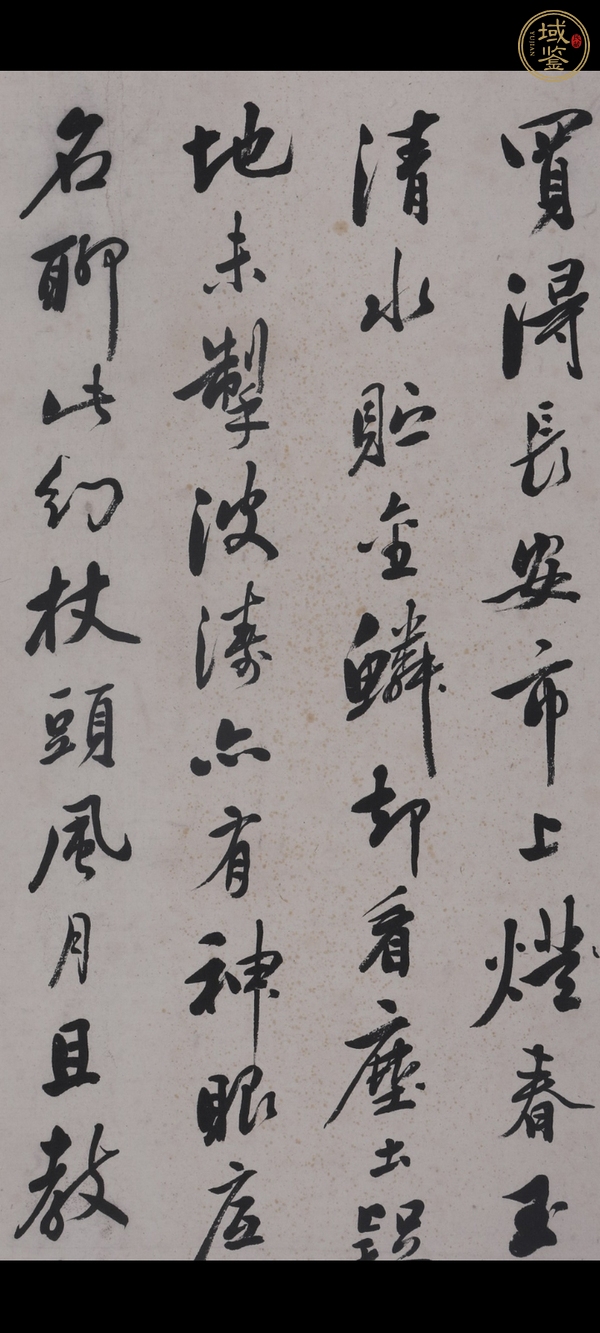 域鉴
YUJIAN
買得長安市上燈春玉
清水貯金鱗却看塵土
地未掣波濤亦有神眼底
名聊此幻杖頭風月且教